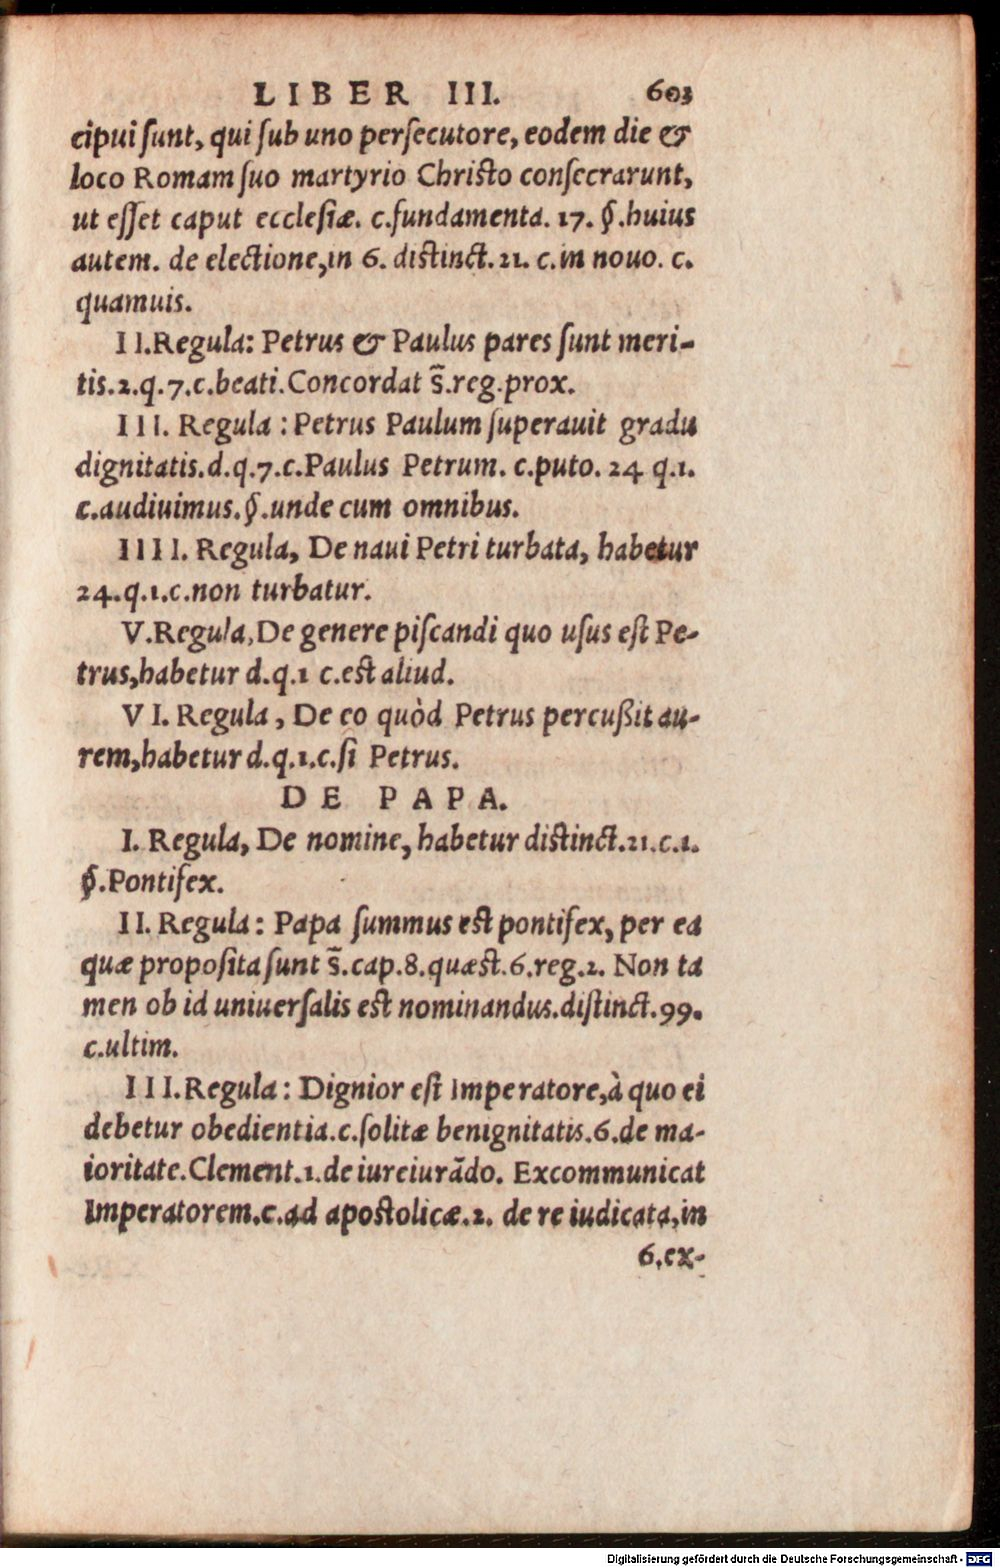 LIBER III. 603
cipui ſunt, qui ſub uno perſecutore, eodem die &
loco Romam ſuo martyrio Chriſto conſecrarunt,
ut eſſet caput eccleſiæ. c.fundamenta. 17. §.huius
autem. de electione,in 6. diſtinct. 21. c.in nouo. c.
quamuis.
II.Regula: Petrus & Paulus pares ſunt meri-
tis.2.q.7.c.beati.Concordat s̄.reg.prox.
III. Regula : Petrus Paulum ſuperauit gradu
dignitatis.d.q.7.c.Paulus Petrum. c.puto. 24 q.1.
c.audiuimus.§.unde cum omnibus.
IIII. Regula, De naui Petri turbata, habetur
24.q.1.c.non turbatur.
V.Regula,De genere piſcandi quo uſus eſt Pe-
trus,habetur d.q.1 c.eſt aliud.
VI. Regula, De eo quòd Petrus percußit au-
rem,habetur d.q.1.c.ſi Petrus.
DE PAPA.
I. Regula, De nomine, habetur diſtinct.21.c.1.
§.Pontifex.
II. Regula: Papa ſummus eſt pontifex, per ea
quæ propoſita ſunt s̄.cap.8.quæſt.6.reg.2. Non ta
men ob id uniuerſalis eſt nominandus.diſtinct.99.
c.ultim.
III.Regula: Dignior eſt Imperatore,à quo ei
debetur obedientia.c.ſolitæ benignitatis.6.de ma-
ioritate.Clement.1.de iureiurādo. Excommunicat
Imperatorem.c.ad apoſtolicæ.2. de re iudicata,in
6.ex-
Digitalisierung gefördert durch die Deutsche Forschungsgemeinschaft - DFG